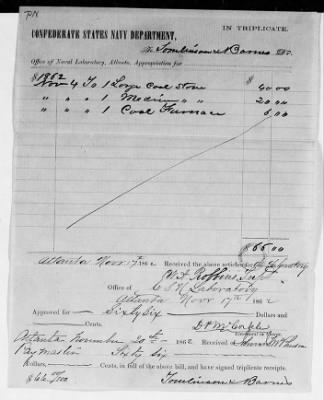 IN TRIPLICATE.
CONFEDERATE STATES NAVY DEPARTMENT,
To Tomlinson & Barnes Dr.
Office of Naval Laboratory, Atlanta, Appropriation for
1862
Nov 4 To 1 Large Coal Stove $ 40 00
" " " 1 Medium " " 20 00
" " " 1 Coal Furnace 6,00
$66 00
Atlanta Novr 17th 1862 Received the above articles for the Laboratory
Office of C S N Laboratory
Atlanta Novr 17th 1862
Approved for Sixty Six Dollars and
Cents.
Atlanta November 20th 1862 Received of
Paymaster Sixty Six
Dollars, Cents, in full of the above bill, and have signed triplicate receipts.
Tomlinson & Barnes